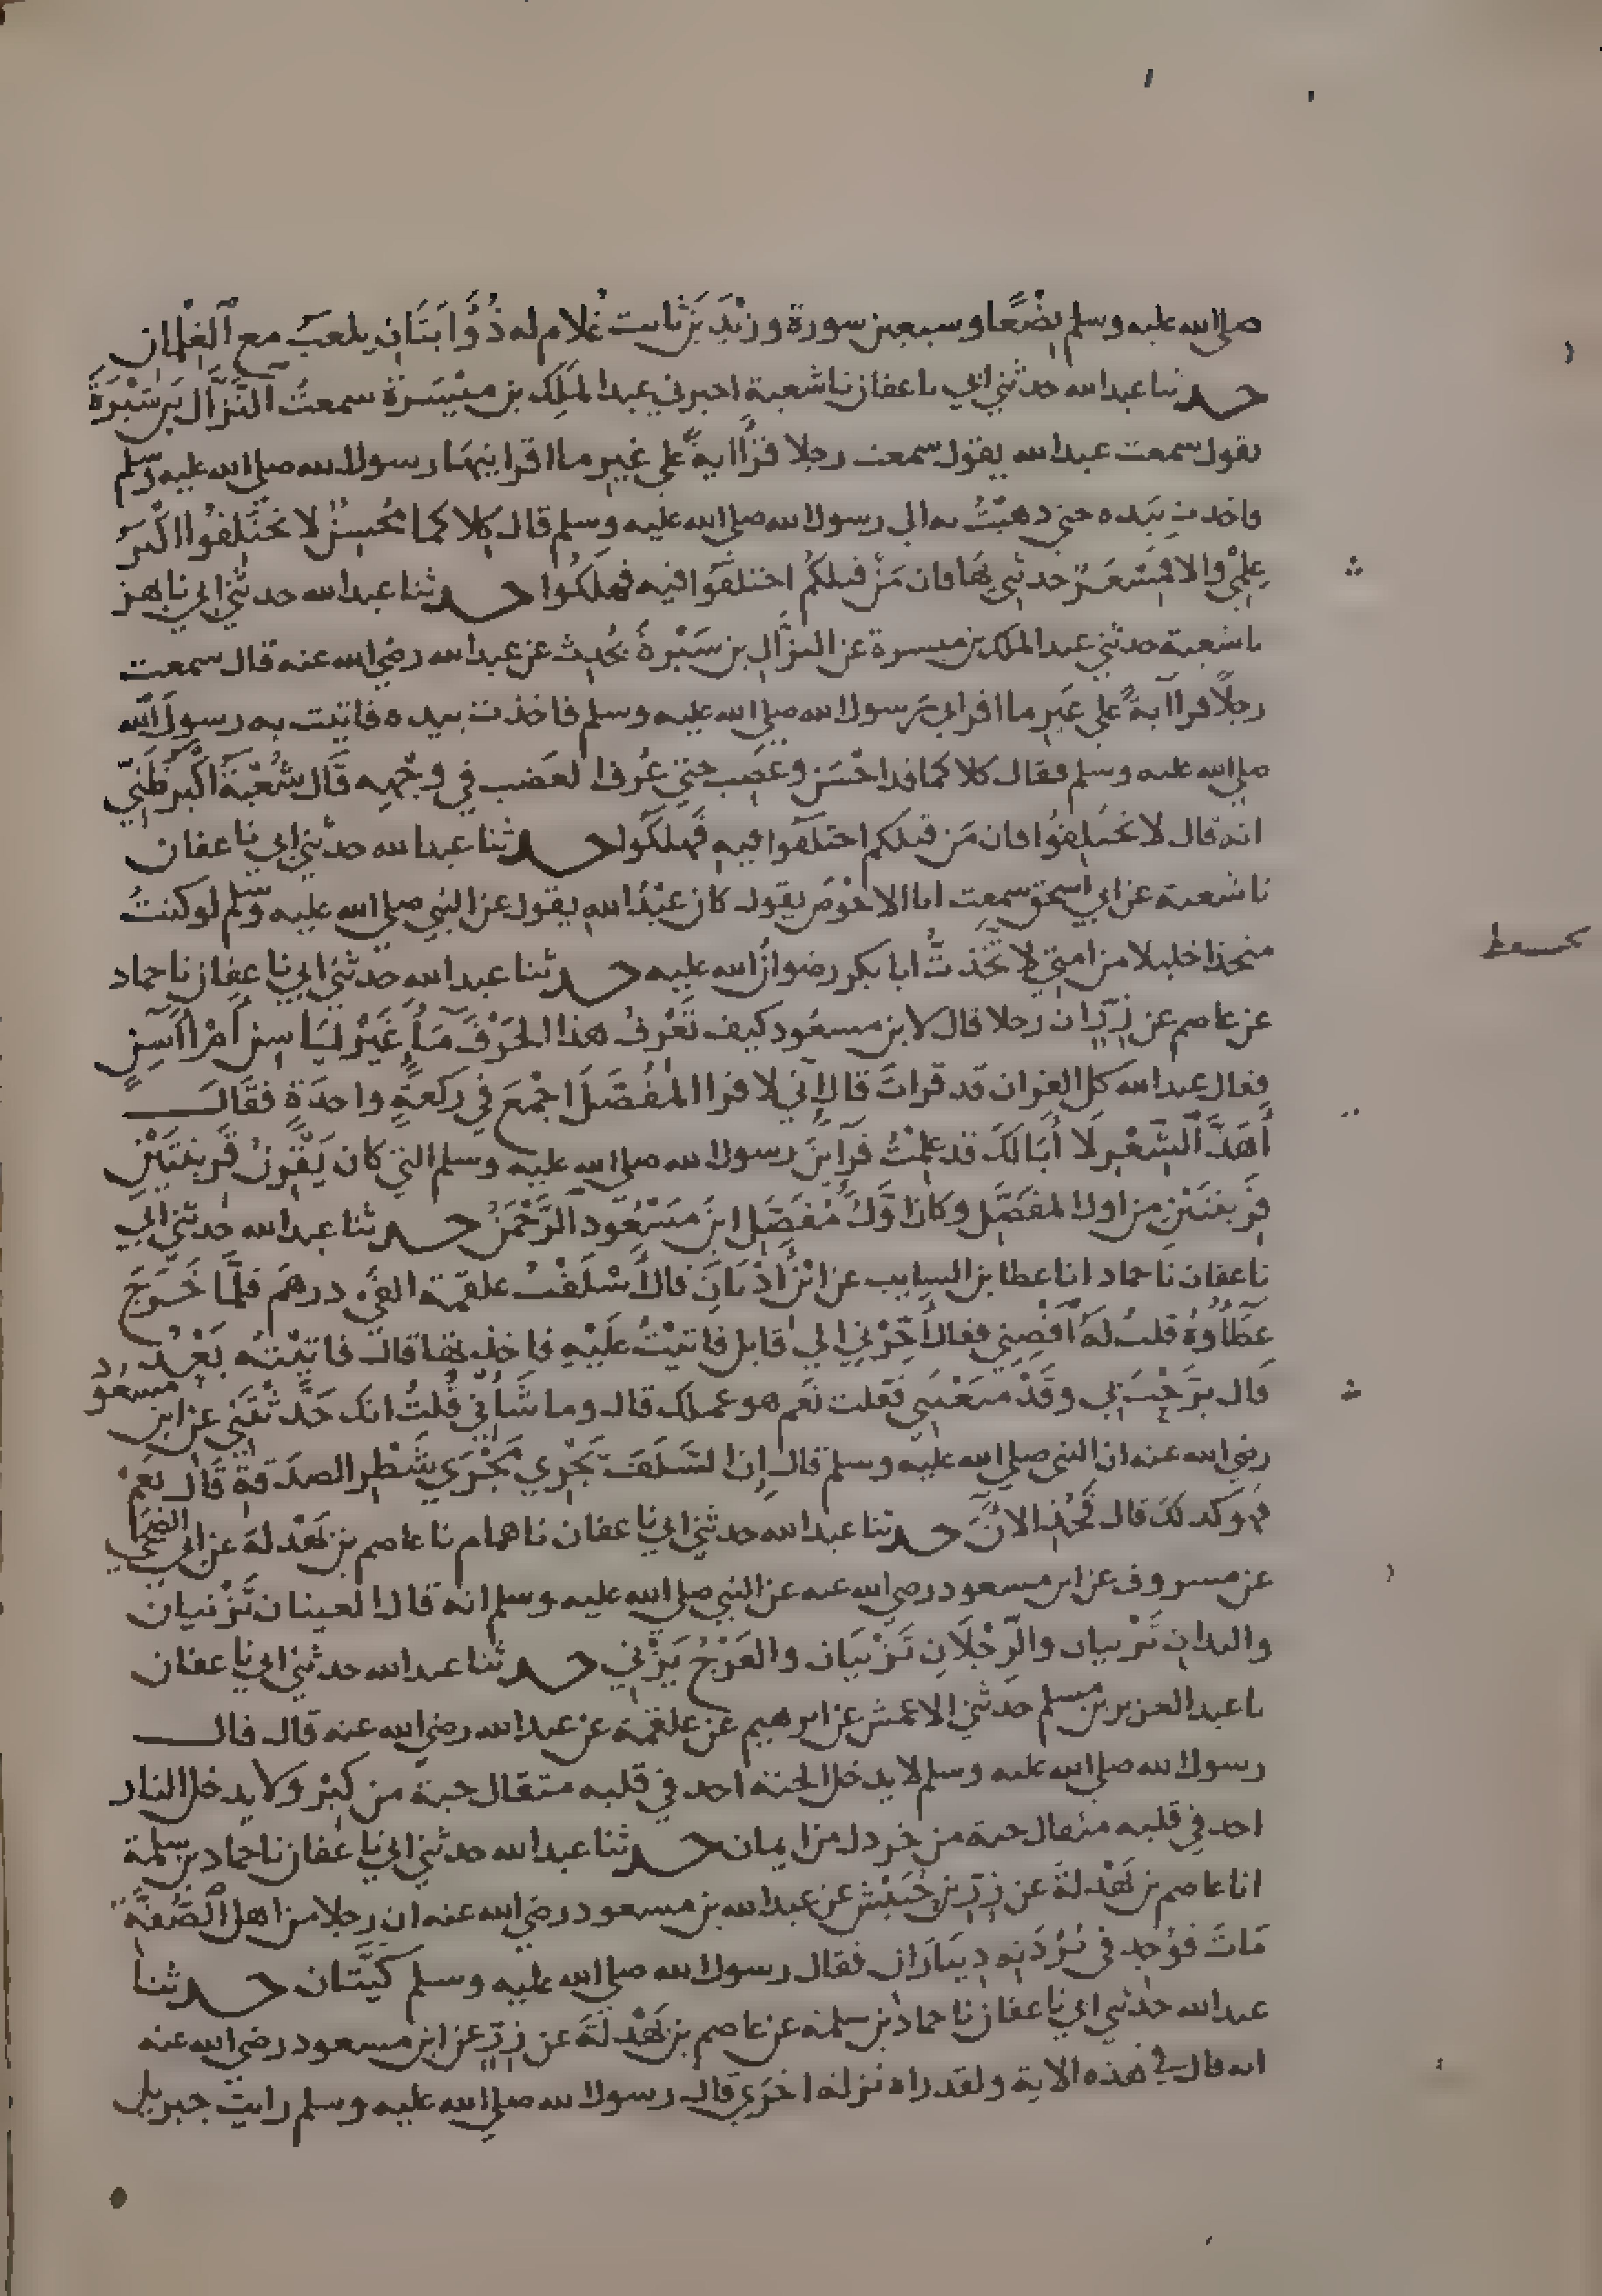 صلى الله عليه وسلم بِضْعًا وسبعين سورة وزَيْدَ بَن ثابت غُلام له ذُؤَابَتَانِ يلعبُ مع الغِلمان
حدثنا عبدالله حدثني ابي نا عفان نا شعبة اخبرني عبد الملك بن مَيْسَرَة سمعتُ النَّزَّالَ بنَ سَبْرَةَ
يقول سمعت عبدالله يقول سمعت رجلا قرأ اية على غير ما اقرانيها رسول الله صلى الله عليه وسلم
فاخذت بيده حتى ذهبتُ به الى رسول الله صلى الله عليه وسلم قال كلاكما محسنٌ لا تختلفوا اكبرُ
عِلْمِي والا فمِسْعَرٌ حدثني بها فان مَنْ قبلكم اختلفوا فيه فهلكُوا حدثنا عبدالله حدثني ابي نا بهز
نا شعبة حدثني عبد الملك بن ميسرة عن النزّال بن سَبْرةَ يُحدث عن عبدالله رضي الله عنه قال سمعت
رجلًا قرا آيةً على غير ما اقراني رسول الله صلى الله عليه وسلم فاخذت بيده فاتيت به رسول الله
صلى الله عليه وسلم فقال كلاكما قد احْسَن وغضِب حتى عُرف الغضب في وجْهِه قال شُعْبَةُ اكْبَرُ ظَنّي
انه قال لا تختلِفوُا فان مَن قبلكم اختلفوا فيه فهلكوا حدثنا عبدالله حدثني ابي نا عفان
نا شعبة عن ابي اسحق سمعت ابا الاحْوَصِ يقول كان عَبْدُ الله يقول عن النبي صلى الله عليه وسلم لو كنتُ
متخذا خليلا من امتي لاتَّخَذتُ ابا بكر رضوان الله عليه حدثنا عبدالله حدثني ابي نا عفان نا حماد
عن عاصم عن زِرٍّ ان رجلا قال لابن مسعود كيف تَعْرِفُ هذا الحَرْفَ مَاءٍ غَيْرِ يَاسِنٍ اَمْ اٰسِنٍ
فقال عبدالله كل القران قد قراتَ قال إني لاقرا المُفَصَّلَ اجْمَعَ في ركعةٍ واحدَةٍ فقال
أَهَذَّ الشِّعْرِ لَا أَبَا لَكَ قد علمْتُ قَرَاينَ رسول الله صلى الله عليه وسلم التي كان يَقْرِنُ قَرِينَتَيْنِ
قَرِينَتَيْنِ من اول المفَصَّلِ وكان اوّلُ مُفَصَّلِ ابن مَسْعُودٍ الرَّحْمَنُ حدثنا عبدالله حدثني ابي
نا عفان نا حماد انا عطا بن السايب عن ابْنِ أُذْنَانَ قال أَسْلَفْتُ علقمة الفَيْ درهم فلمَّا خَرَجَ
عَطَاوُهُ قلتُ لَه اقْضِني فقال أَخِّرْني إلى قابل فاتيتُ عليْهِ فاخذتها قال فاتيْتُه بَعْدُ
قال برَّحْتَ بي وقَدْ مَنعْتني فقلت نَعم هو عملك قال وما شَأني قُلتُ انك حَدَّثْتَني عن ابن مسعود
رضي الله عنه ان النبي صلى الله عليه وسلم قال إن السَّلَفَ يَجْرِي مَجْرَي شَطْرِ الصدَقةِ قال نَعمْ
فهو كذلك قال فَخُذِ الانَ حدثنا عبدالله حدثني ابي نا عفان نا همام نا عاصم بن بَهْدلَةَ عن ابي الضحى
عن مسروق عن ابن مسعود رضي الله عنه عن النبي صلى الله عليه وسلم انه قال العينان تَزْنيان
واليدان تَزْنيان والرِّجْلَانِ تَزْنِيَان والفَرْجُ يَزْني حدثنا عبدالله حدثني ابي نا عفان
نا عبد العزيز بن مسلم حدثني الاعمش عن ابرهيم عن علقمة عن عبدالله رضي الله عنه قال قال
رسول الله صلى الله عليه وسلم لا يدخل الجنة احد في قلبه مثقال حبة من كِبْرٍ ولا يدخل النار
احد في قلبه مثقال حبة من خردل من ايمان حدثنا عبدالله حدثني ابي نا عفان نا حماد بن سلمة
انا عاصم بن بَهْدلَةَ عن زِرّ بن حُبَيْشٍ عن عبدالله بن مسعود رضي الله عنه ان رجلا من اهل الصُّفَّةِ
مَاتَ فوُجد في بُرْدَتِه دِينارَان فقال رسول الله صلى الله عليه وسلم كَيَّتان حدثنا
عبدالله حدثني ابي نا عفان نا حماد بن سلمة عن عاصم بن بَهْدلَةَ عن زِرٍّ عن ابن مسعود رضي الله عنه
انه قال في هذه الاية ولقد راه نزلة اخرَي قال رسول الله صلى الله عليه وسلم رايت جبريل